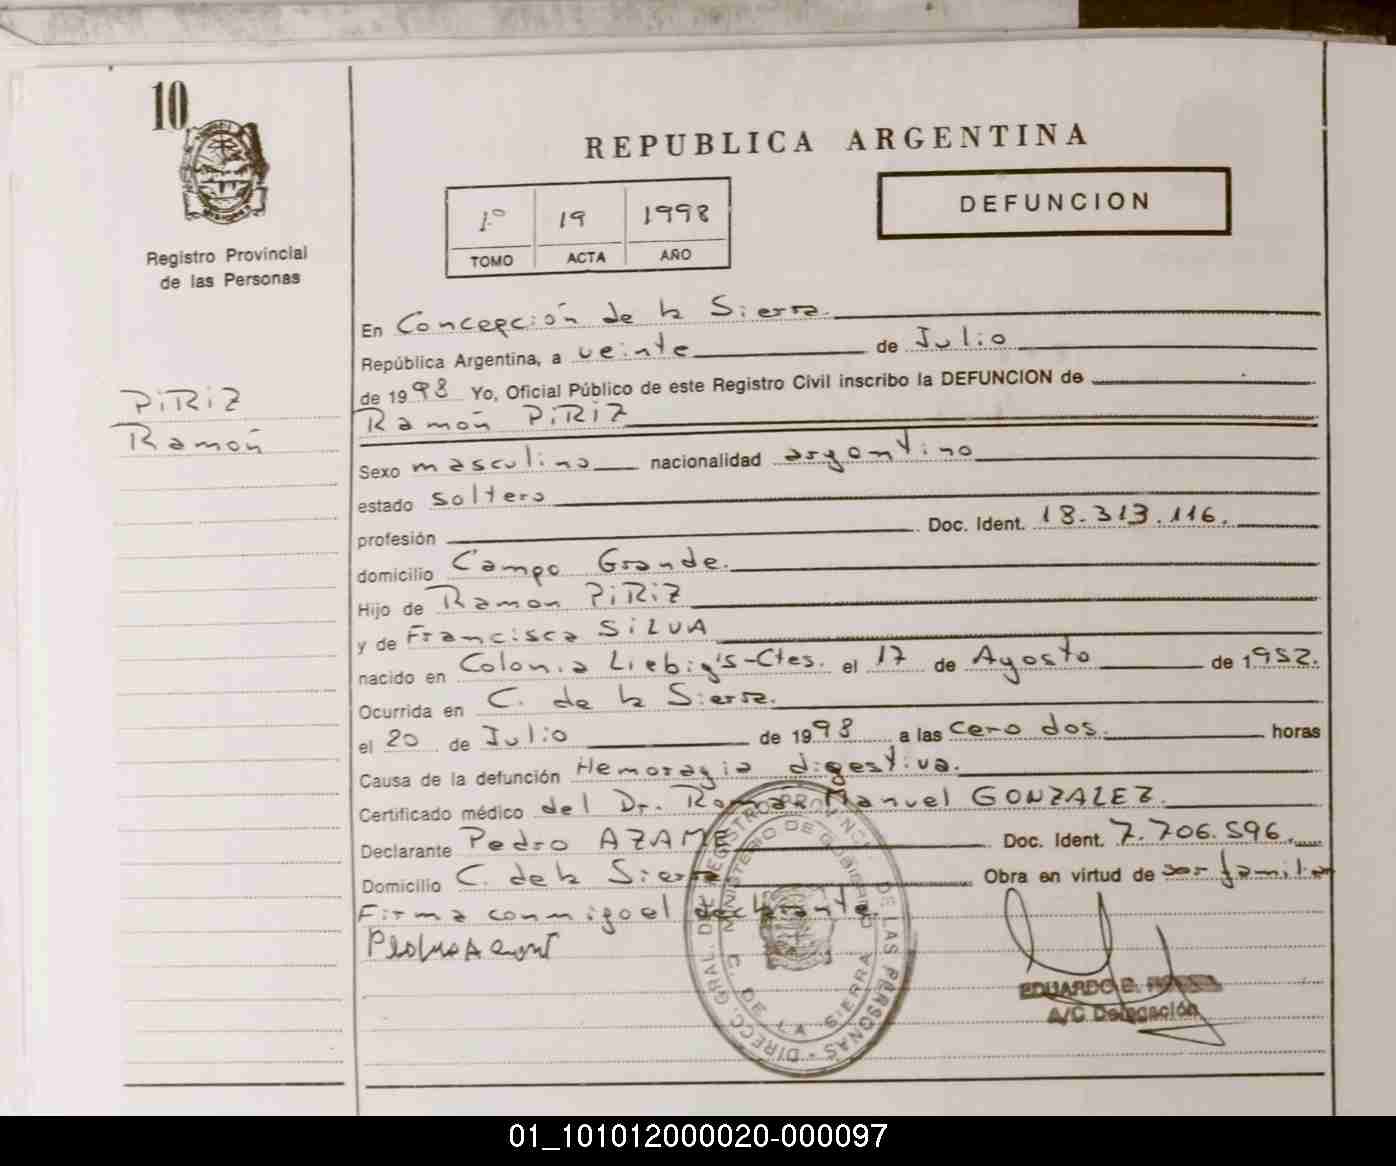 10
REPUBLICA ARGENTINA
1º 19 1998
TOMO ACTA AÑO
DEFUNCION
Registro Provincial
de las Personas
PiRiZ
Ramón
En Concepción de la Sierra.
República Argentina, a veinte de Julio
de 1998 Yo, Oficial Público de este Registro Civil inscribo la DEFUNCION de
Ramón PiRiZ
Sexo masculino nacionalidad argentino
estado soltero
profesión Doc. Ident. 18.313.116.
domicilio Campo Grande.
Hijo de Ramon PiRiZ
y de Francisca SiLVA
nacido en Colonia Liebig's-Ctes. el 17 de Agosto de 1952.
Ocurrida en C. de la Sierra.
el 20 de Julio de 1998 a las cero dos. horas
Causa de la defunción Hemoragia digestiva.
Certificado médico del Dr. Roman Manuel GONZALEZ.
Declarante Pedro AZAME Doc. Ident. 7.706.596.
Domicilio C. de la Sierra Obra en virtud de ser familiar
Firma conmigo el declarante.
DIRECC. GRAL. DEL REGISTRO PROVINCIAL DE LAS PERSONAS
MINISTERIO DE GOBIERNO
C. DE LA SIERRA
EDUARDO E.
A/C Delegación
01_101012000020-000097